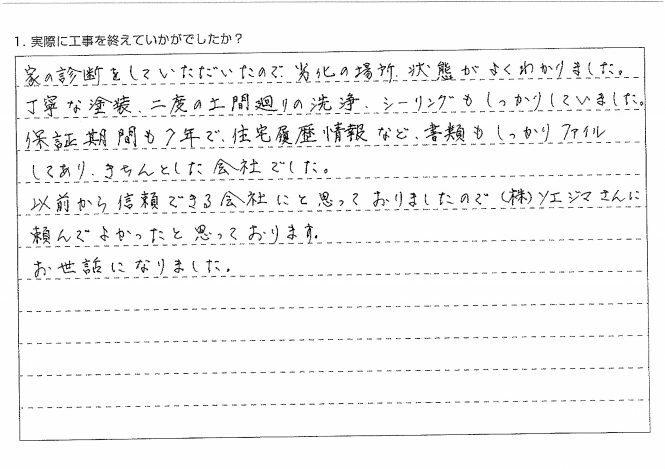 1. 実際に工事を終えていかがでしたか？
家の診断をしていただいたので、劣化の場所、状態がよくわかりました。
丁寧な塗装、二度の土間廻りの洗浄、シーリングもしっかりしていました。
保証期間も7年で、住宅履歴情報など、書類もしっかりファイル
してあり、きちんとした会社でした。
以前から信頼できる会社にと思っておりましたので(株)ソエジマさんに
頼んでよかったと思っております。
お世話になりました。